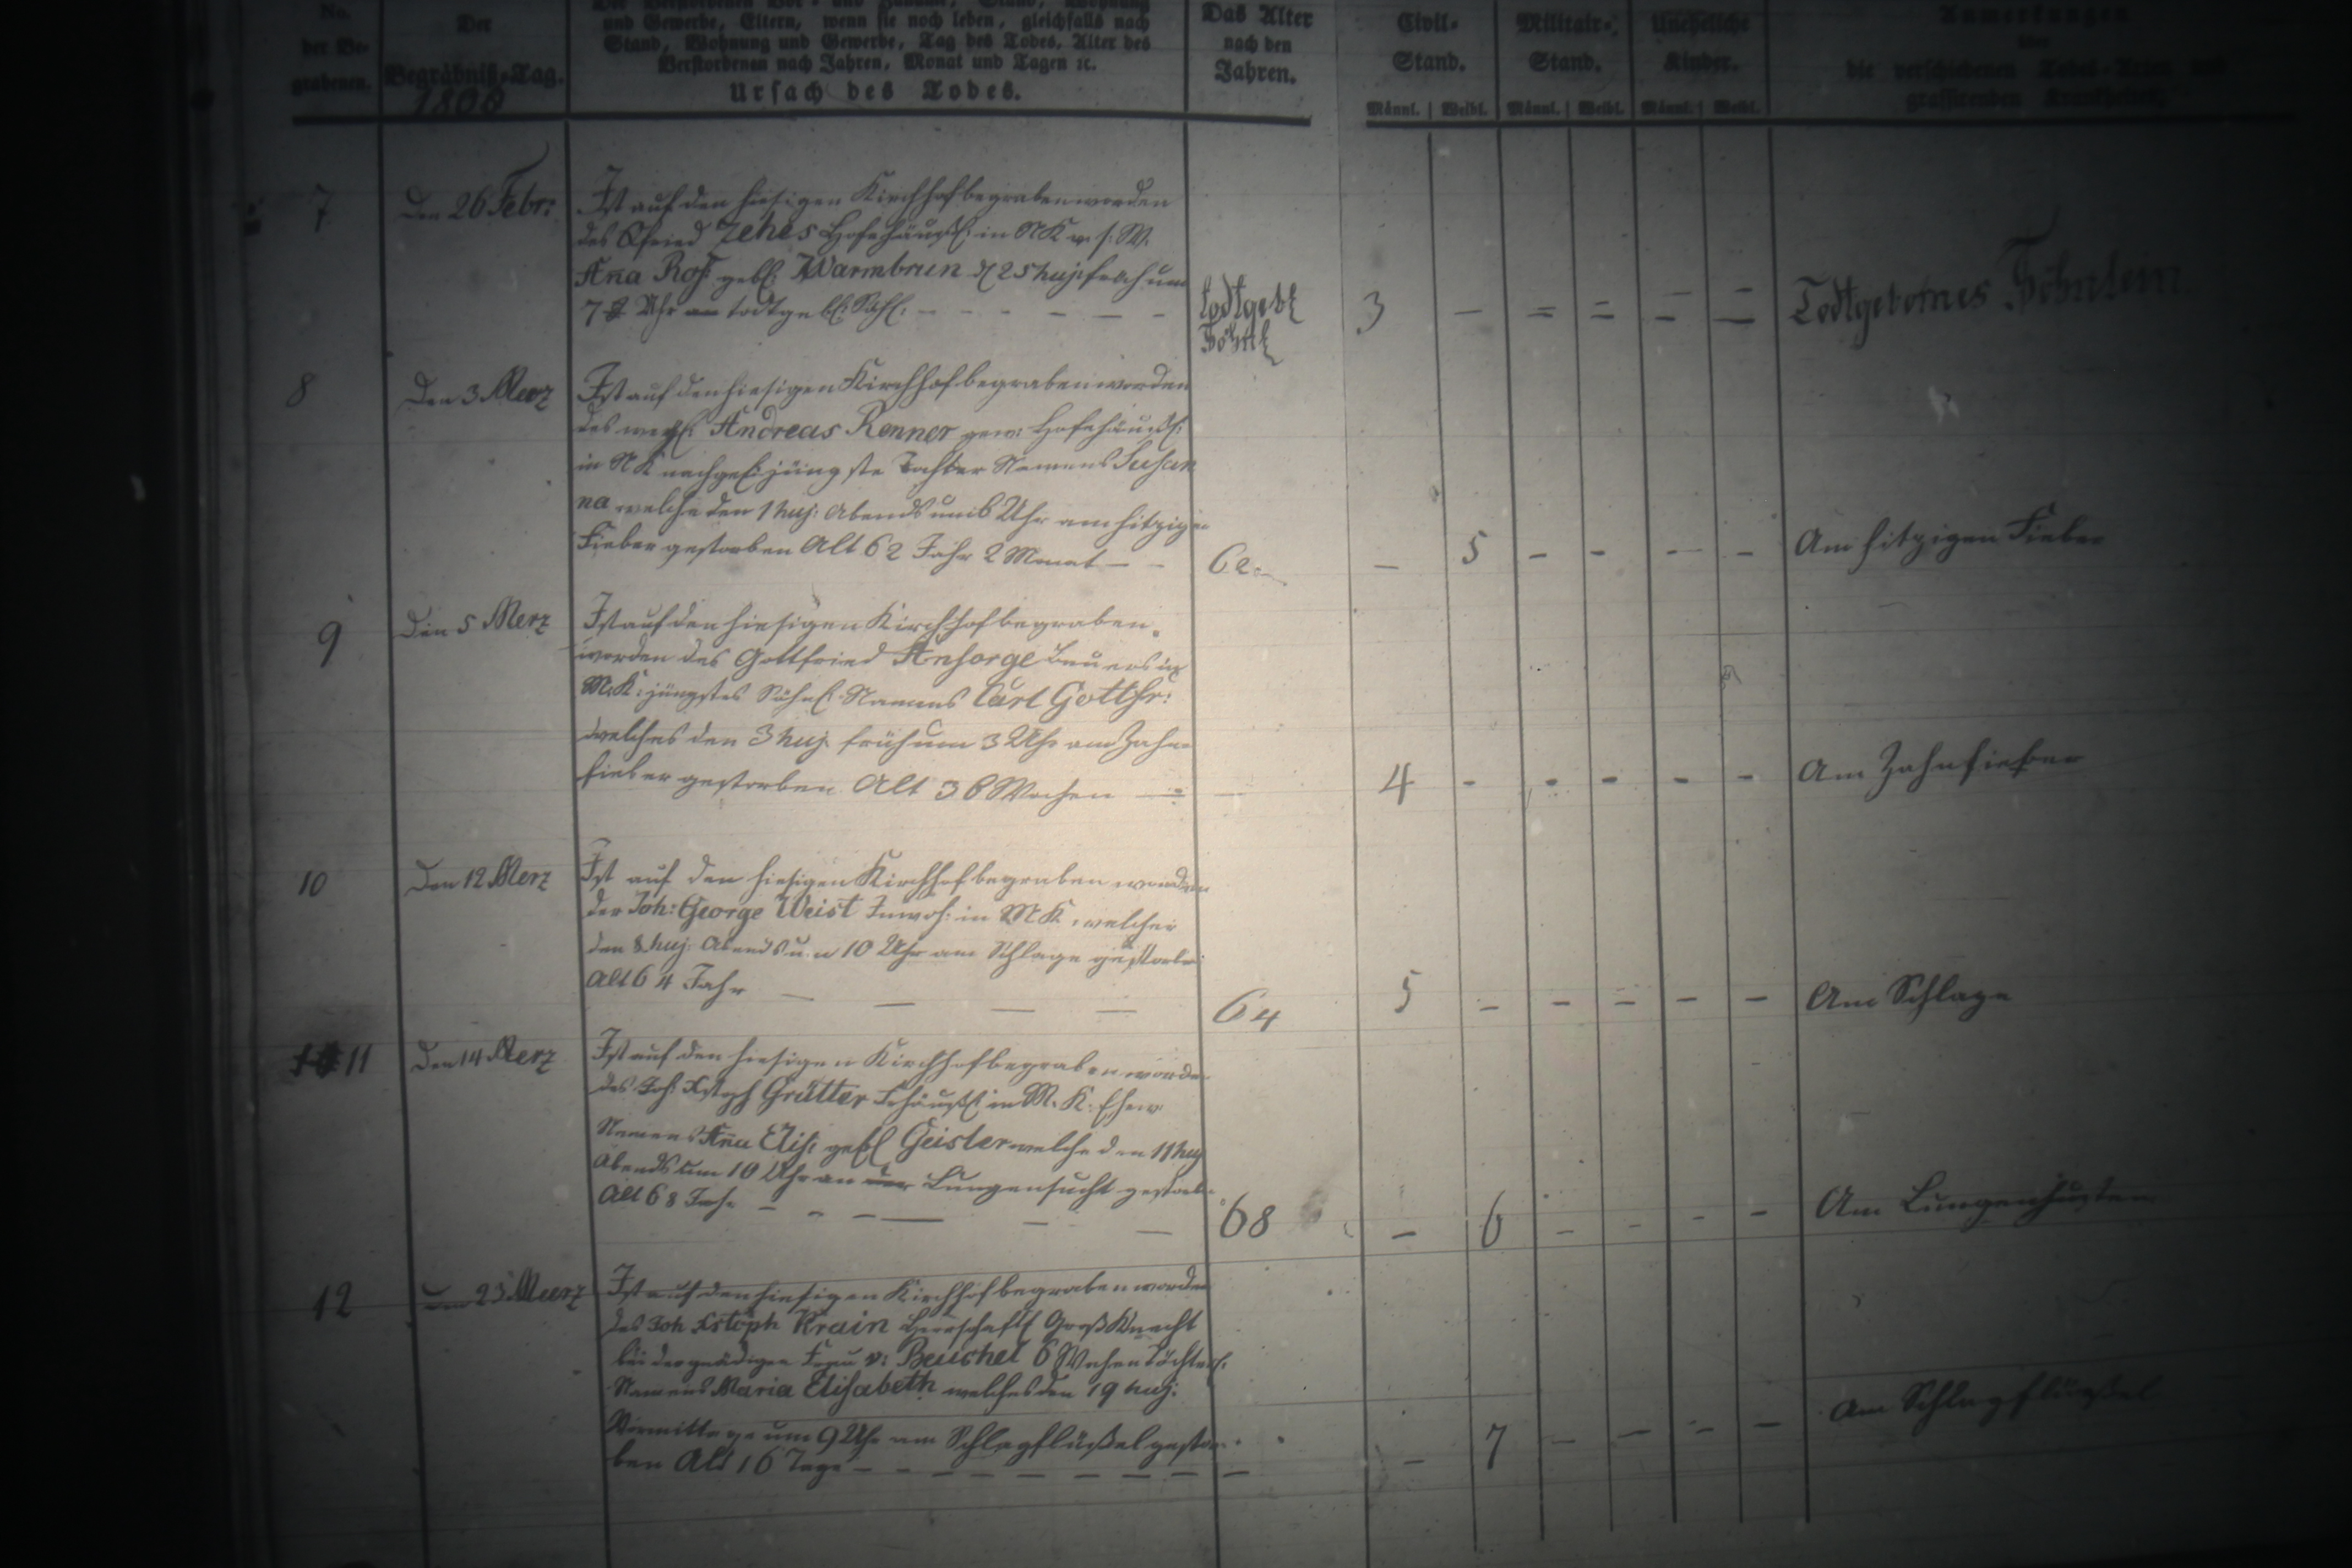 No. der Be- grabenen.
Der Begräbniß-Tag.
1800
und Gewerbe, Eltern, wenn sie noch leben, gleichfalls nach
Stand, Wohnung und Gewerbe, Tag des Todes, Alter des
Verstorbenen nach Jahren, Monat und Tagen ꝛc.
Ursach des Todes.
Das Alter
nach den
Jahren.
Civil-
Stand.
Militair-
Stand.
Uneheliche
Kinder.
Männl. | Weibl. Männl. | Weibl. Männl. | Weibl.
Anmerkungen
über
die verschiedenen Todes-Arten und
grassirenden Krankheiten.
7
Den 26 Febr:
Ist auf den hiesigen Kirchhof begraben worden
des Gfried Zehes Hofehäußl: in NK
Aña Ros: geb. Warmbrun d 25 huj: frueh um
7 Uhr todtgeb. Söhl: - - - - - -
todtgeb
Söhnl
3 - = = = =
Todtgebornes Söhnlein
8
Den 3 Merz
Ist auf den hiesigen Kirchhof begraben worden
des Andreas Renner gew: Hofehäußl:
in NK nachgel: jüngste Tochter Namens Susan
na welche den 1 huj: Abends um 6 Uhr am hitzigen
Fieber gestorben Alt 62 Jahr 2 Monat - -
62.
- 5 - - - -
Am hitzigen Fieber
9
Den 5 Merz
Ist auf den hiesigen Kirchhof begraben
worden des Gottfried Ansorge Bauers in
M.K: jüngstes Söhnl: Namens Carl Gottfr:
welches den 3 huj. früh um 3 Uhr am Zahn
fieber gestorben Alt 36 Wochen -
4 - - - - -
Am Zahnfieber
10
Den 12 Merz
Ist auf den hiesigen Kirchhof begraben worden
der Joh: George Weist Inwoh: in MK, welcher
den 8 huj. Abends um 10 Uhr am Schlage gestorben
Alt 64 Jahr - - - -
64
5 - - - - -
Am Schlage
11
Den 14 Merz
Ist auf den hiesigen Kirchhof begraben worden
des Joh: Xstoph Grütter Frhäußl: in M. K. Ehew
Namens Aña Elis: geb. Geisler welche den 11 huj
Abends um 10 Uhr an Lungensucht gestorben
Alt 68 Jahr - - - - - -
68
- 6 - - - -
Am Lungenhusten
12
Den 23 Meerz
Ist auf den hiesigen Kirchhof begraben worden
des Joh Xstoph Krain Herrschaftl Groß Knecht
bei der gnädigen Frau v: Beuchel 6 Wochen Töchterl:
Namens Maria Elisabeth welches den 19 huj:
Vormittags um 9 Uhr am Schlagflüßel gestor
ben Alt 16 Tage - - - - - - - - -
- 7 - - - -
Am Schlagflüßel